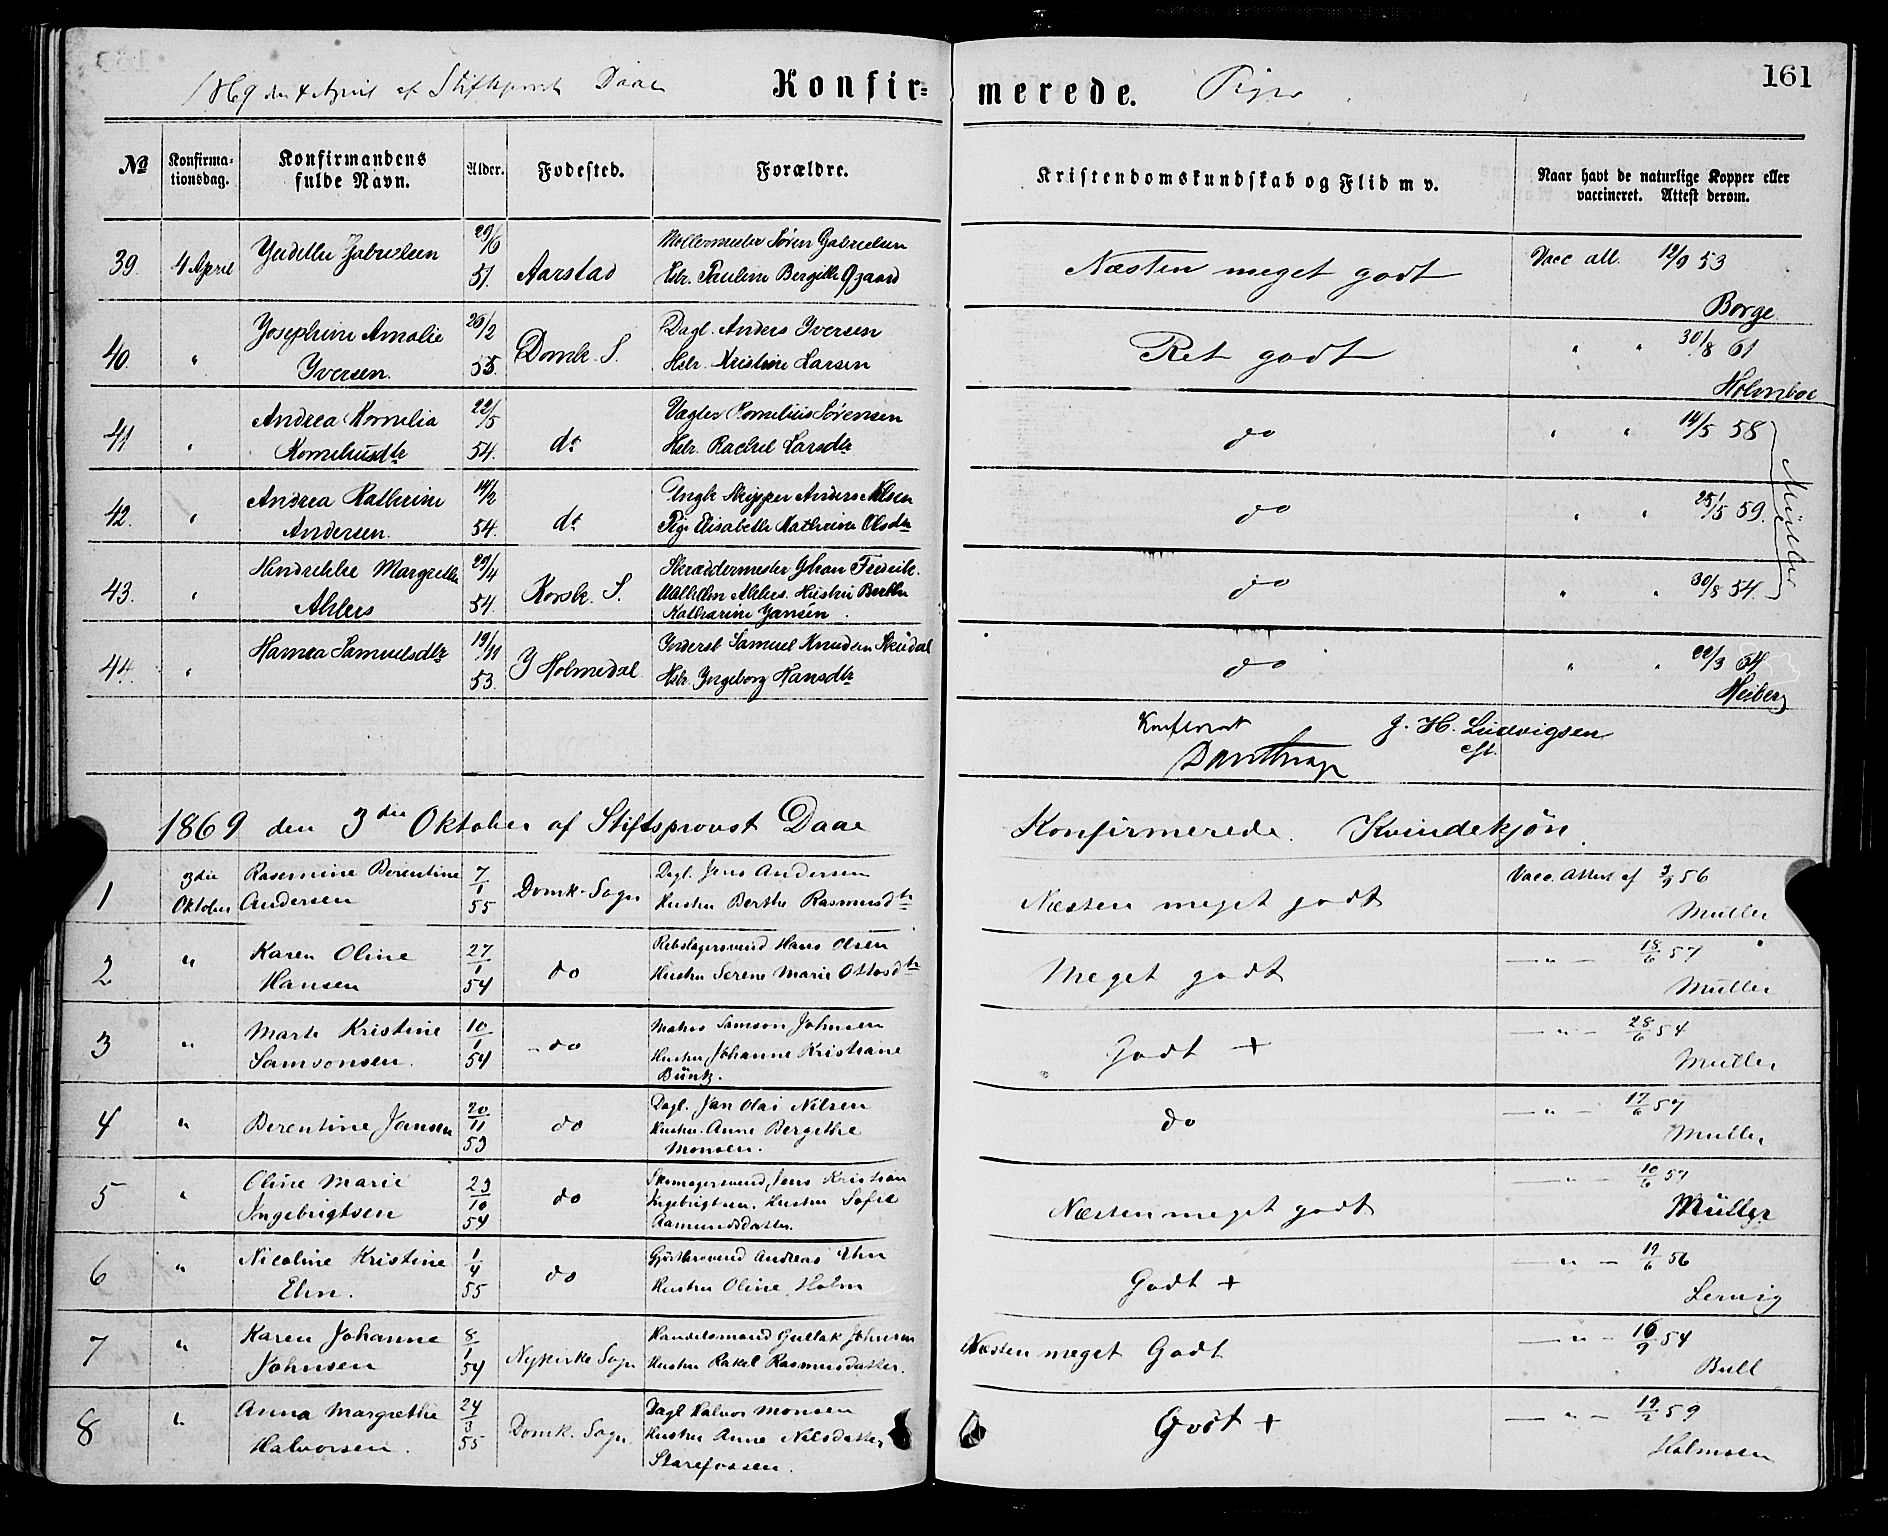 1869 den 4 April af Stiftsprovst Daae Konfir= merede. Piger 161
No Konfirmationsdag. Konfirmandens fulde Navn. Alder. Fodested. Forældre. Kristendomskundskab og Flid m v. Naar havt de naturlige Kopper eller vaccineret. Attest derom.
39. 4 April Gabrielsen 29/6 51. Aarstad Søren Gabrielsen
Pauline Bergitte Næsten meget godt Vacc att. 12/9 53
Borge
40. " Josephine Amalie
Iversen. 26/2 55. Domk. S. Dagl. Anders Iversen
Hstr. Kristine Larsen Ret godt " " 30/8 61
Holmboe
41 " Andrea Kornelia
Korneliusdtr 22/5 54. do Vægter Kornelius Sørensen
Hstr. Rachel Larsdtr do " " 14/5 58
42. " Andrea Kathrine
Andersen. 14/2 54. do Ungk. Skipper Anders Nilsen
Pige Elisabeth Kathrine Olsdtr do " " 25/5 59.
43. " Margrethe
Ahlers 29/4 54. Korsk. S. Skræddermester Johan Fredrik
Ahlers. Hustru Berthe
Katharine Jansen do " " 30/8 54.
Müller
44. " Hamea Samuelsdtr 19/11 53. Y Holmedal Inderst Samuel Knudsen
Hstr. Ingeborg Hansdtr do " " 22/3 54
Heiberg
Konfereret J. H. Ludvigsen
1869 den 3die Oktober af Stiftsprovst Daae Konfirmerede. Kvindekjøn.
1 3die
Oktober Rasmine Berentine
Andersen 7/1 55 Domk. Sogn Dagl. Jens Andersen
Hustru Berthe Rasmusdtr Næsten meget godt Vacc. Attest af 3/9 56
Müller
2 " Karen Oline
Hansen 27/1 54 do Rebslagersvend Hans Olsen
Hustru Serene Marie Ottosdtr Meget godt — " — 18/6 57
Müller
3 " Marte Kristine
Samsonsen. 10/1 54 do Samson Johnsen
Hustru Johanne Kristiane
Büntz. Godt + — " — 28/6 54
Müller
4 " Berentine Jansen 20/11 53 do Dagl. Jan Olai Nilsen
Hustru Anne Bergithe
Monsen. do — " — 17/6 57
Müller
5 " Oline Marie
Ingebrigtsen 23/10 54 do Skomagersvend Jens Kristian
Ingebrigtsen. Hustru Sofie
Aamundsdatter. Næsten meget godt — " — 10/6 57
Müller
6 " Nicoline Kristine
Ehn. 1/4 55 do Gjørtlersvend Andreas Ehn
Hustru Oline Holm Godt + — " — 19/6 56
Lervig
7 " Karen Johanne
Johnsen 8/1 54 Nykirke Sogn Handelsmand Gullak Johnsen
Hustru Rakel Rasmusdatter. Næsten meget Godt — " — 16/9 54
Bull
8 " Anna Margrethe
Halvorsen. 24/3 55 Domk. Sogn. Dagl Halvor Monsen
Hustru Anne Nilsdatter
Starefossen. Godt + — " — 19/2 59
Holmsen